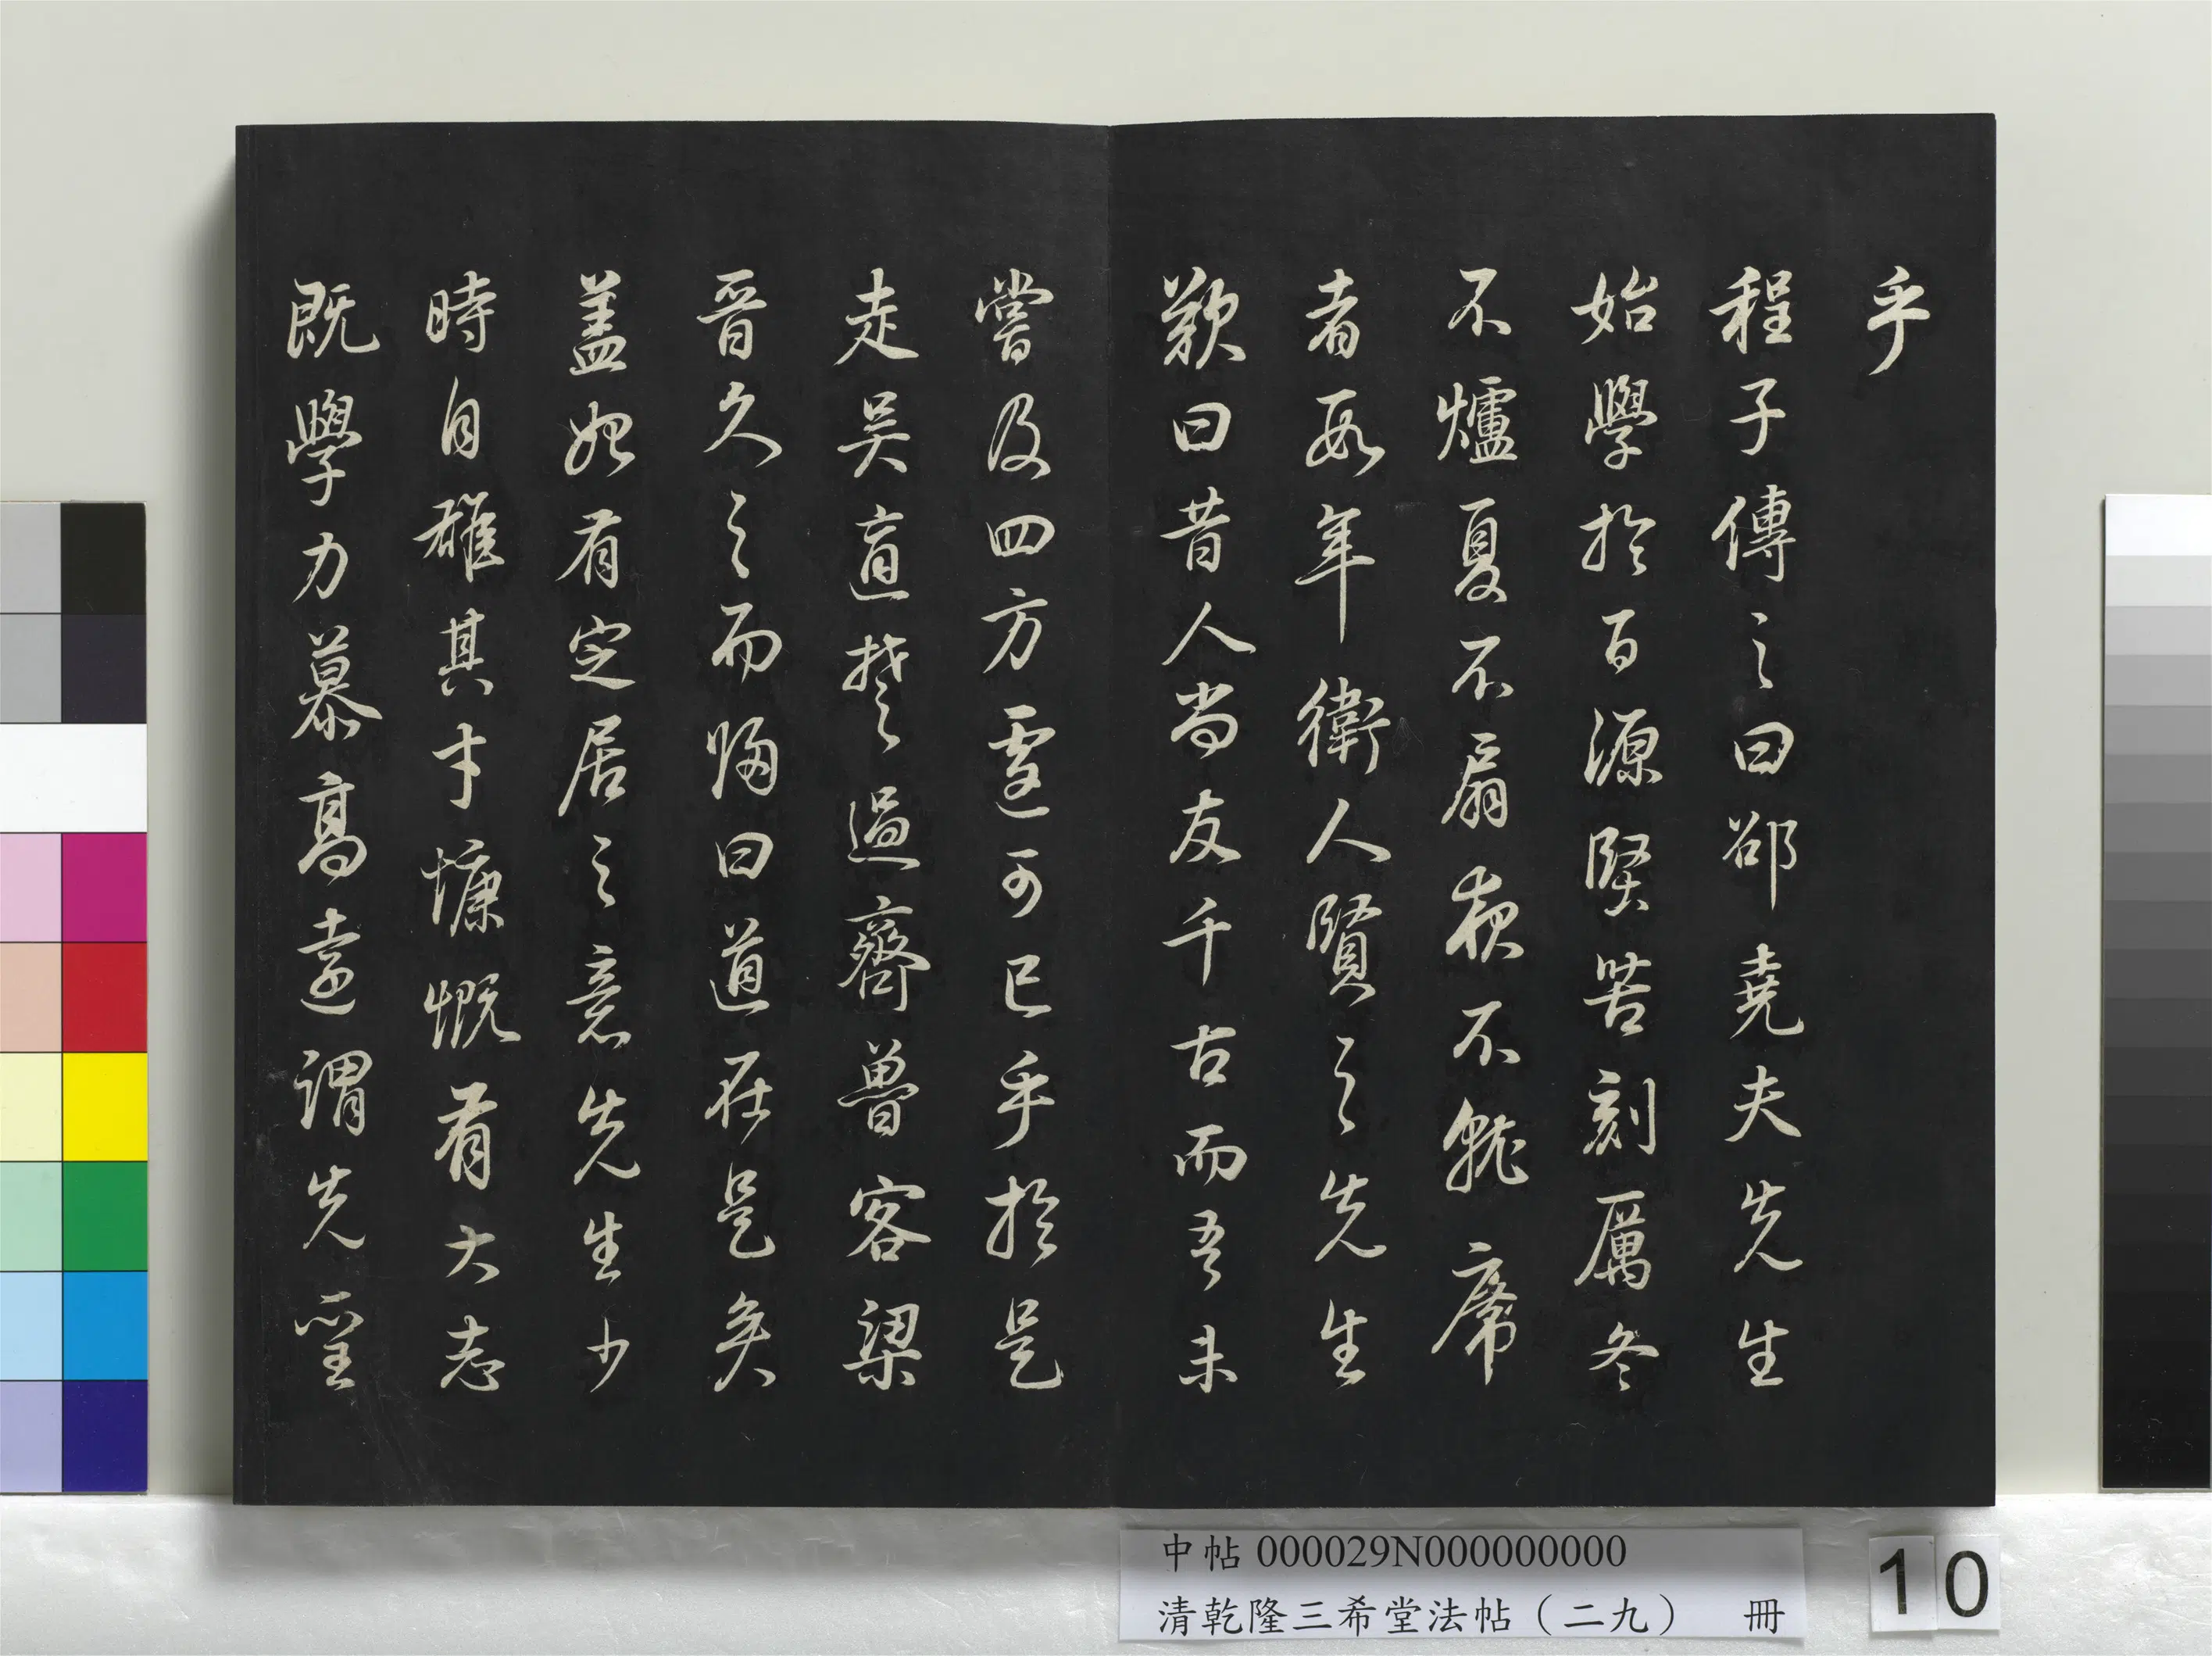 乎
程子傳之曰邵堯夫先生
始學於百源堅苦刻厲冬
不爐夏不扇夜不就席
者數年衛人賢之先生
歎曰昔人尚友千古而吾未
嘗及四方遽可已乎於是
走吳適楚過齊魯客梁
晉久之而歸曰道在是矣
蓋始有定居之意先生少
時自雄其才慷慨有大志
既學力慕高遠謂先聖
中帖 000029N000000000
清乾隆三希堂法帖（二九） 冊
10